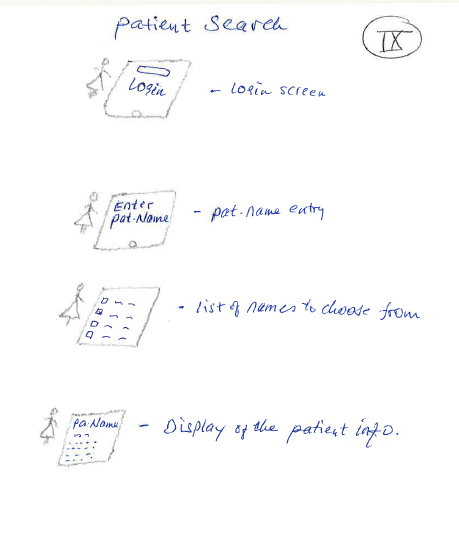 Patient Search
IX
Login
- Login screen
Enter
pat. Name
- pat. name entry
- list of names to choose from
Pa. Name
- Display of the patient info.